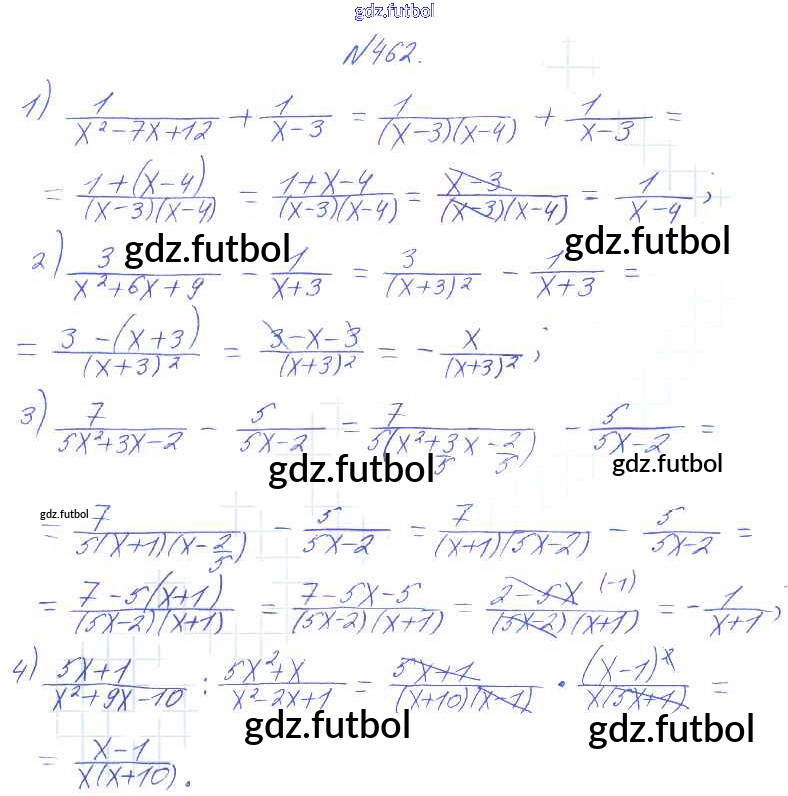 gdz.futbol
N462.
1) 1/(x²-7x+12) + 1/(x-3) = 1/((x-3)(x-4)) + 1/(x-3) =
= (1+(x-4))/((x-3)(x-4)) = (1+x-4)/((x-3)(x-4)) = (x-3)/((x-3)(x-4)) = 1/(x-4);
gdz.futbol gdz.futbol
2) 3/(x²+6x+9) - 1/(x+3) = 3/(x+3)² - 1/(x+3) =
= (3-(x+3))/(x+3)² = (3-x-3)/(x+3)² = - x/(x+3)²;
3) 7/(5x²+3x-2) - 5/(5x-2) = 7/(5(x²+3/5 x-2/5)) - 5/(5x-2) =
gdz.futbol gdz.futbol
gdz.futbol
= 7/(5(x+1)(x-2/5)) - 5/(5x-2) = 7/((x+1)(5x-2)) - 5/(5x-2) =
= (7-5(x+1))/((5x-2)(x+1)) = (7-5x-5)/((5x-2)(x+1)) = (2-5x (-1))/((5x-2)(x+1)) = - 1/(x+1);
4) (5x+1)/(x²+9x-10) : (5x²+x)/(x²-2x+1) = (5x+1)/((x+10)(x-1)) · (x-1)²/(x(5x+1)) =
gdz.futbol gdz.futbol
= (x-1)/(x(x+10)).